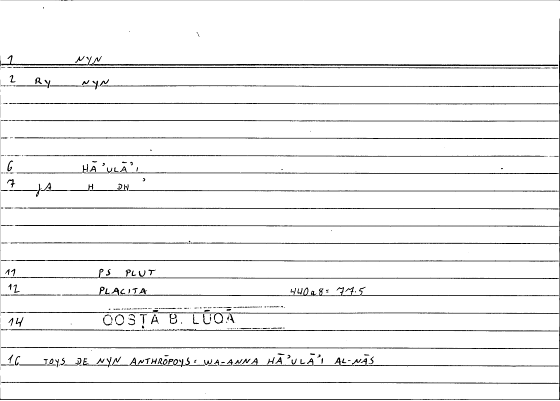 1 NYN
2 RY NYN
6 HĀ'ULĀ'I
7 JA H DH '
11 PS PLUT
12 PLACITA 440a8= 77.5
14 QOSṬĀ B. LŪQĀ
16 TOYS DE NYN ANTHRŌPOYS= WA-ANNA HĀ'ULĀ'I AL-NĀS